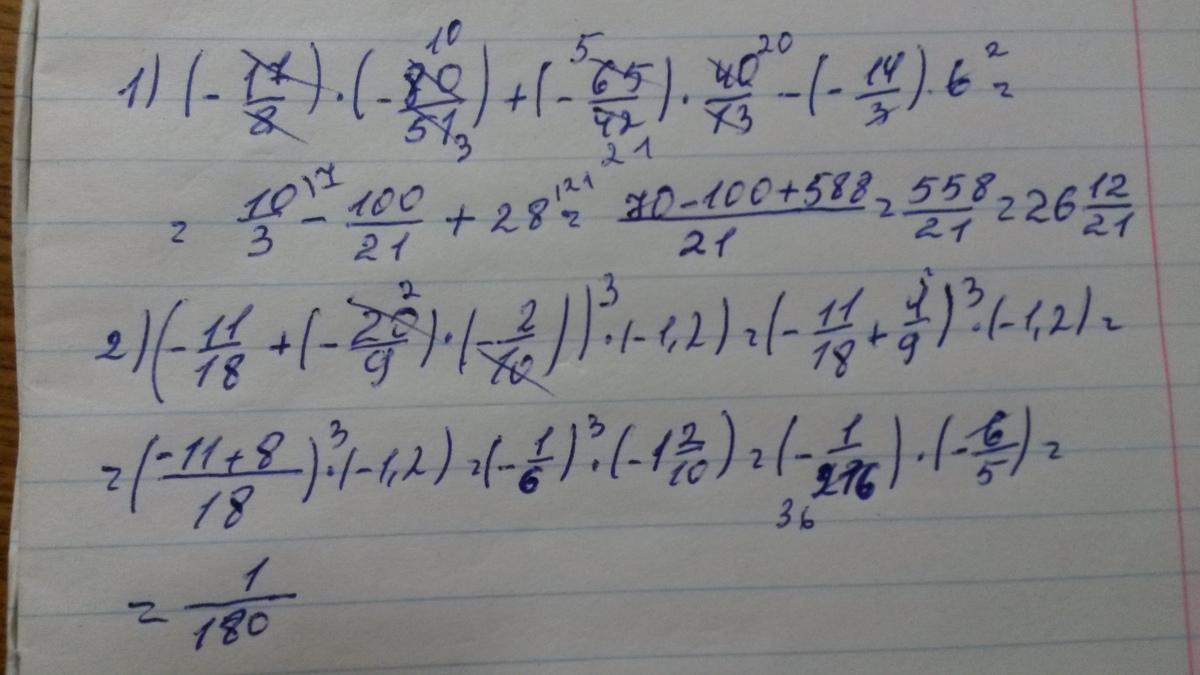 1) (- 17/8) · (- 80/51) + (- 65/42) · 40/13 - (- 14/3) · 6 =
= 10/3 - 100/21 + 28 = (70 - 100 + 588)/21 = 558/21 = 26 12/21
2) (- 11/18 + (- 20/9) · (- 2/10))³ · (-1,2) = (- 11/18 + 4/9)³ · (-1,2) =
= ((-11 + 8)/18)³ · (-1,2) = (- 1/6)³ · (-1 2/10) = (- 1/216) · (- 6/5) =
= 1/180